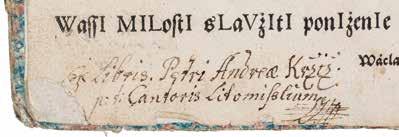 WassI MILostI sLaVžItI ponIženIe
Wácla
Ex Libris. Petri Andreæ
p: t: Cantoris Litomisslium